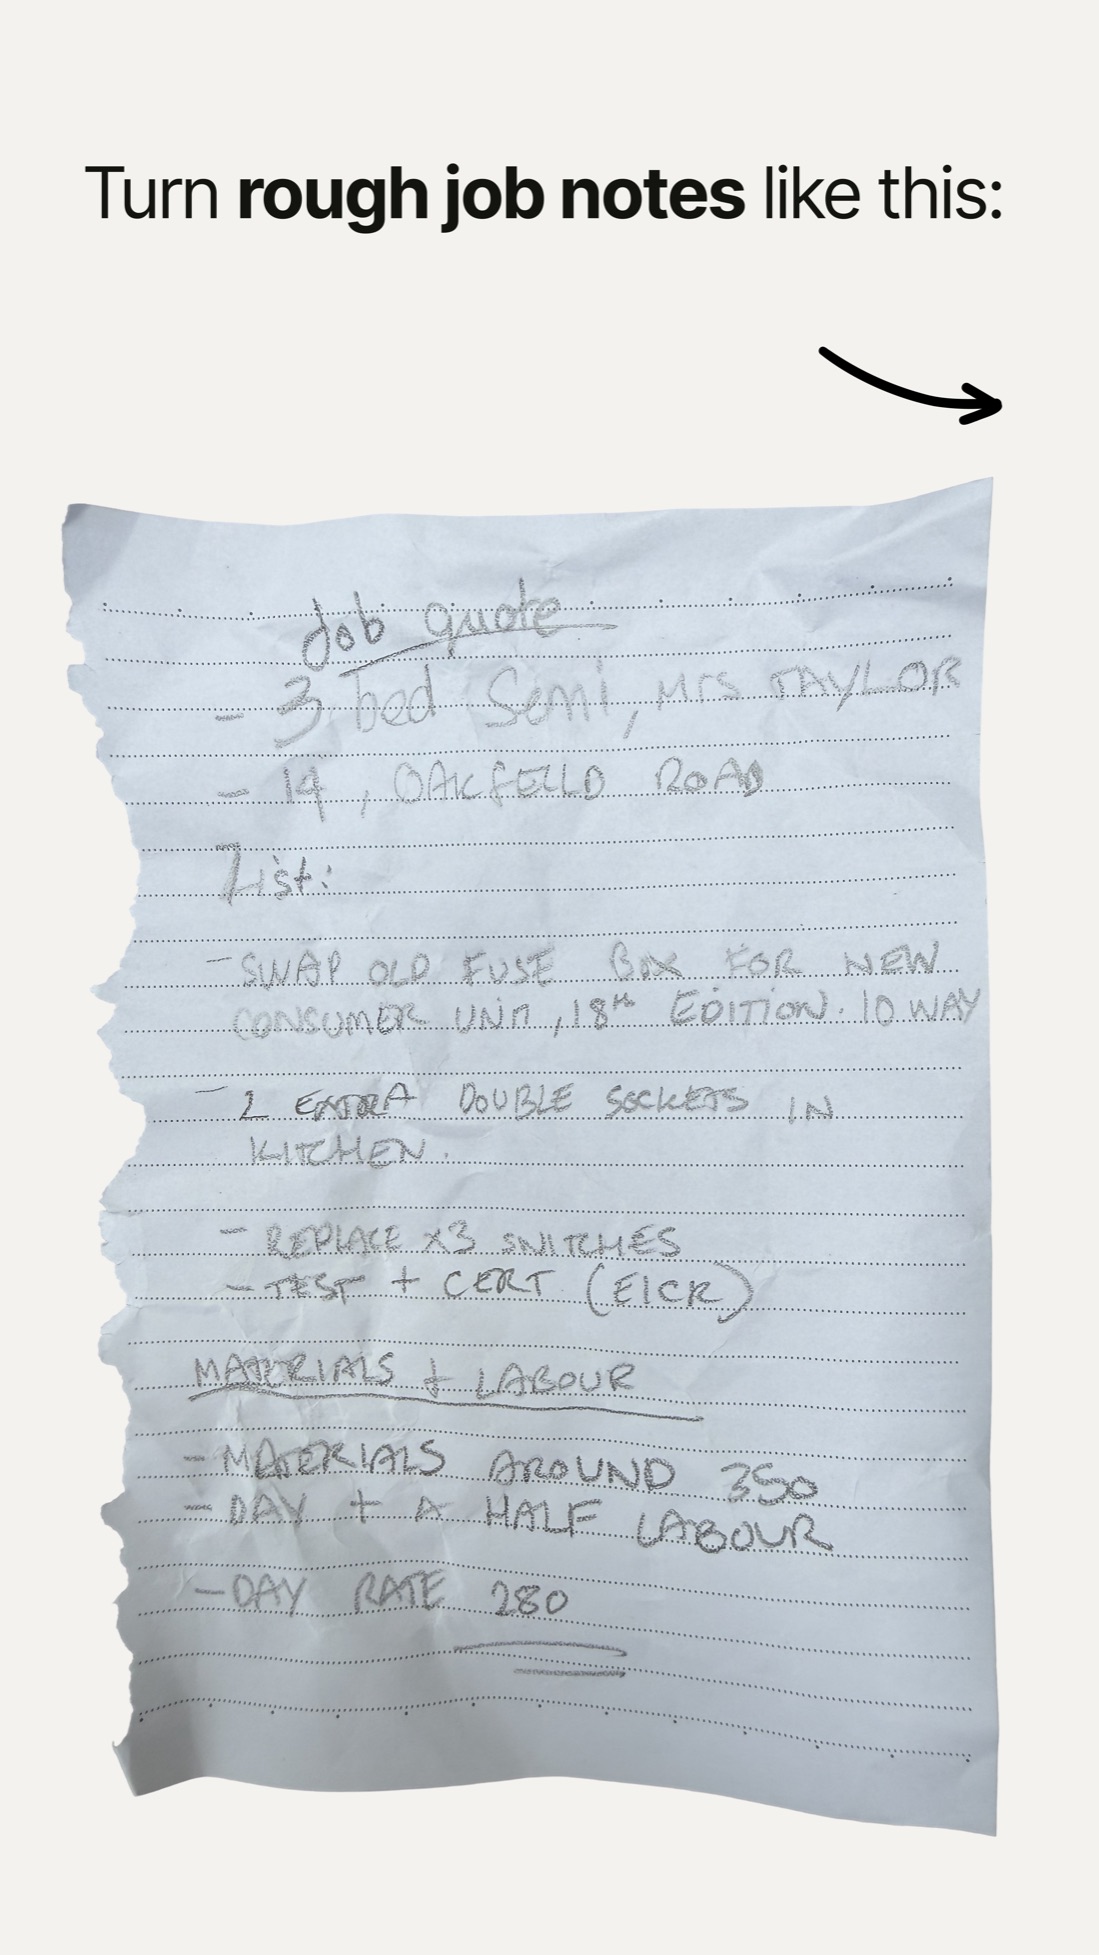 Turn rough job notes like this:
Job quote
- 3 bed Semi, Mrs TAYLOR
- 14, OAKFEILD ROAD
List:
- SWAP OLD FUSE BOX FOR NEW
CONSUMER UNIT, 18th EDITION. 10 WAY
- 2 EXTRA DOUBLE SOCKETS IN
KITCHEN.
- REPLACE x3 SWITCHES
- TEST + CERT (EICR)
MATERIALS + LABOUR
- MATERIALS AROUND 350
- DAY + A HALF LABOUR
- DAY RATE 280